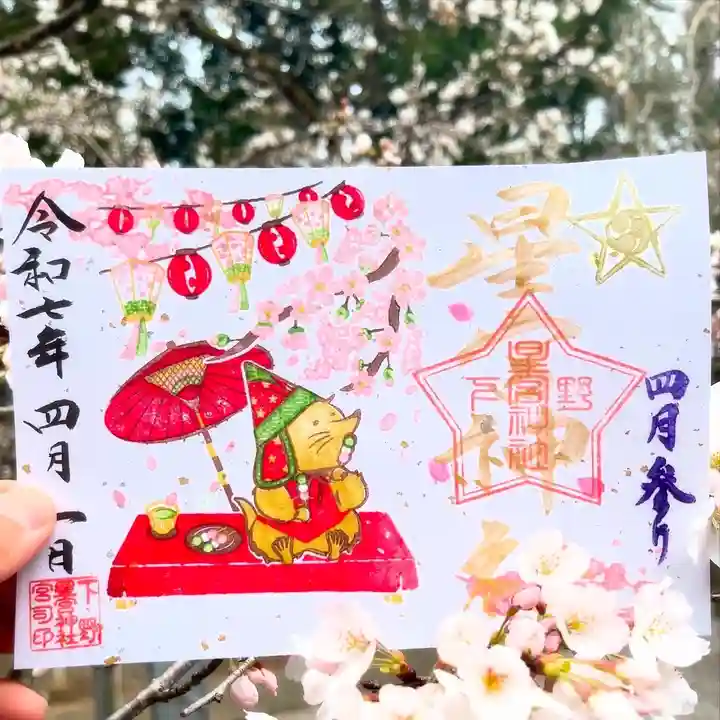 四月参り
星宮神社
下野
星宮神社
令和七年 四月 一日
下野
星宮神社
宮司印